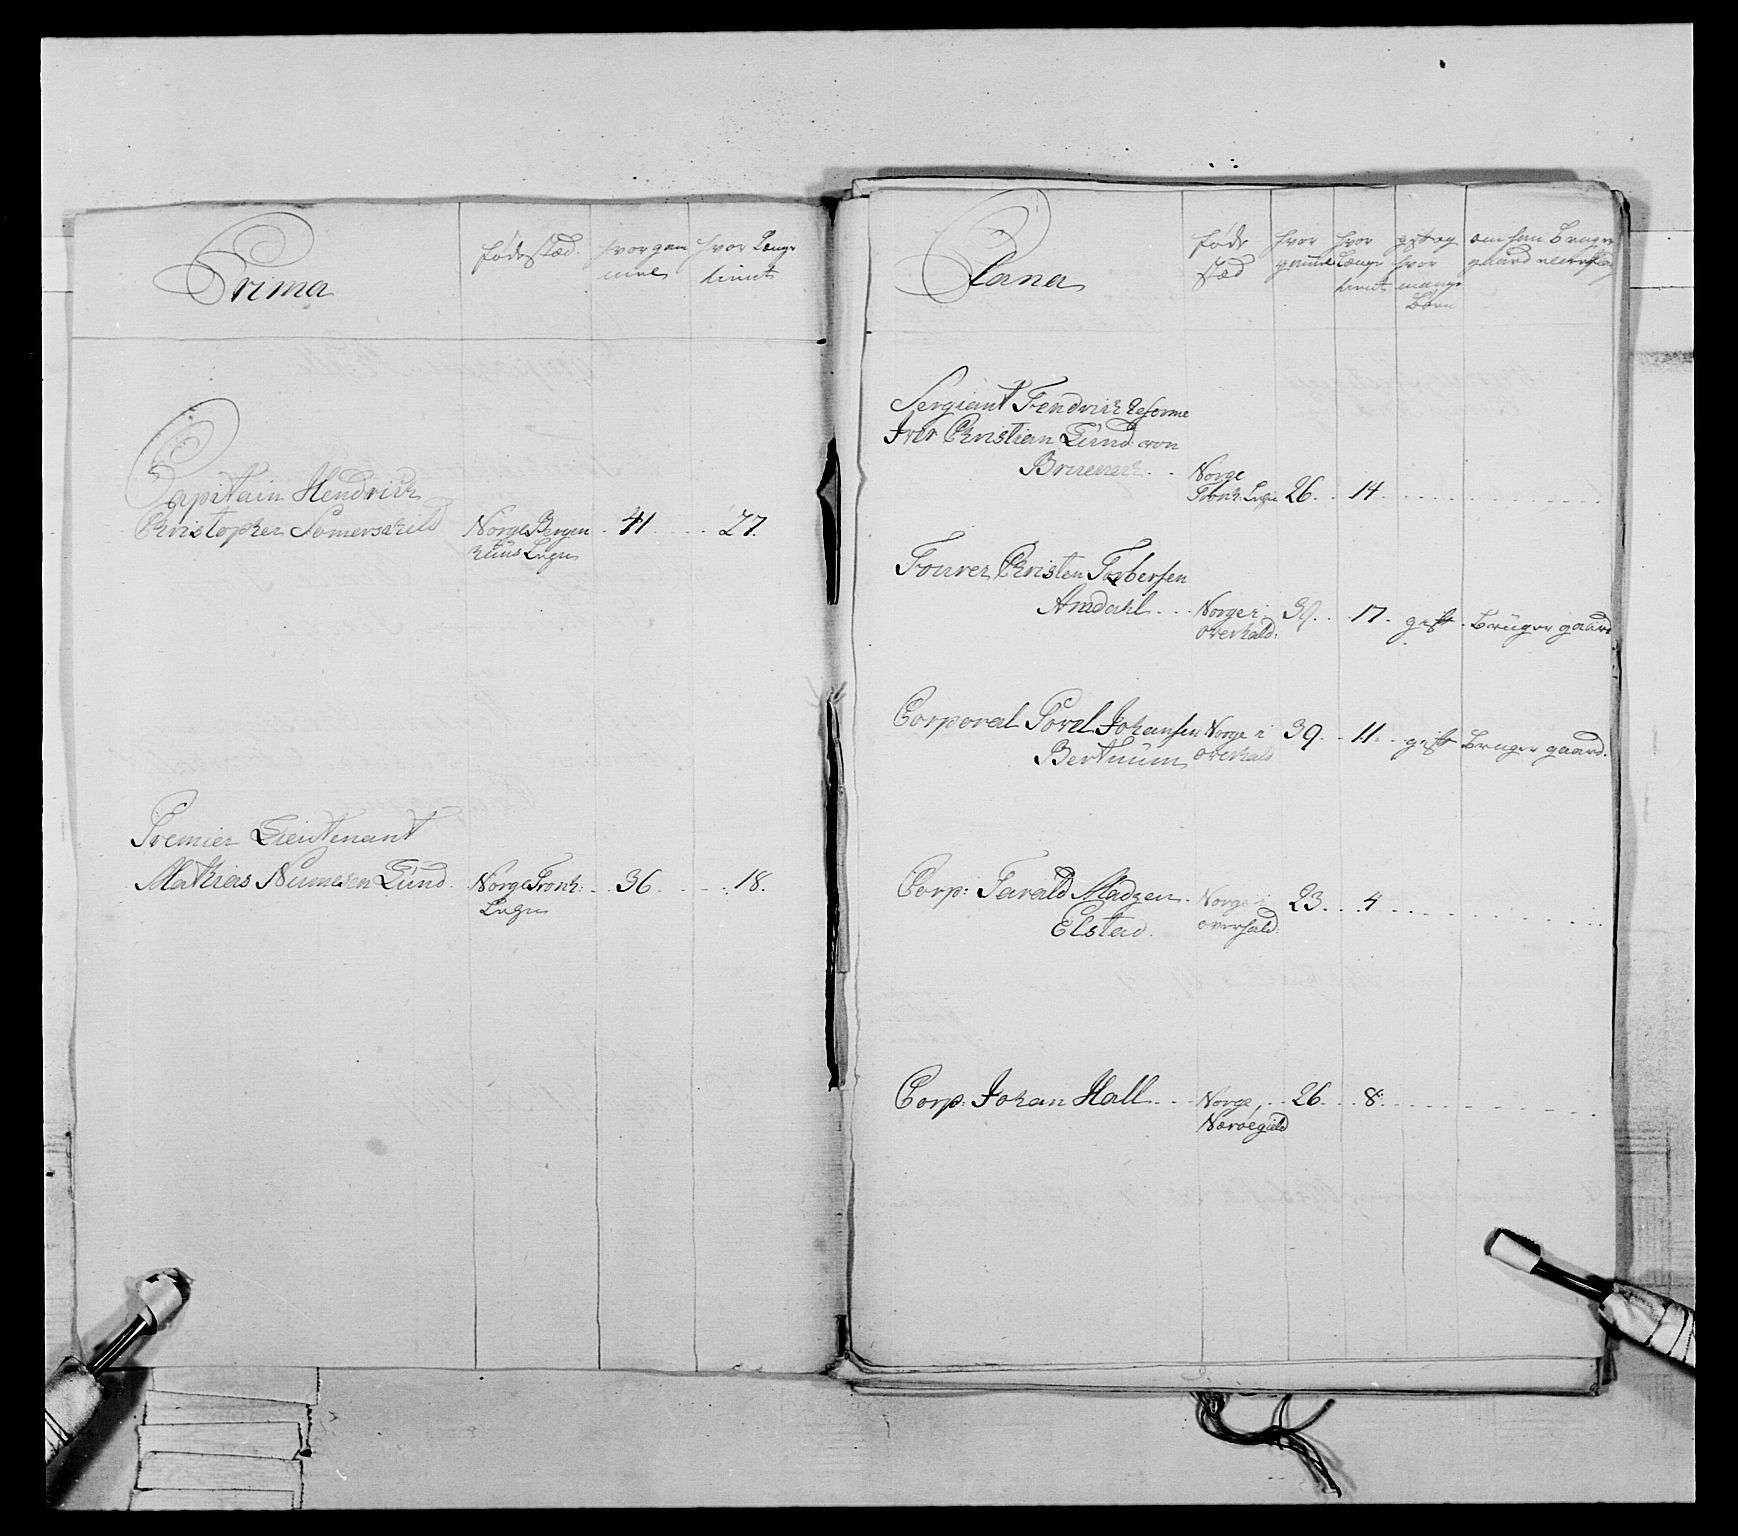 Prima
føde stæd.
hvor gam
mel
hvor Længe
tient
Capitain Hendrich
Christopher Somerschield
Norge Bergen
huus Legn
41
27.
Premier Lieutenant
Mathias Numesen Lund.
Norge Tronh:
Legn
36
18.
Plana
føde
stæd
hvor
gamel
hvor
Længe
tient
gift og
hvor
mange
Børn
om han Bruger
gaard eller
Sergiant Fendrich Reforme
Iver Christian Lund von
Norge
Tronh. Legn
26
14
Fourer Christen Torbersen
Amdahl
Norge i
overhald:
39
17
gift
Brüger gaard
Corporal Povel Johansen
Bertnüm
Norge i
overhald
39
11
gift
Bruger gaard.
Corp: Tarald Madzen
Elstad.
Norge i
overhald:
23
4
Corp: Johan Hall
Norge,
Nærøegield
26
8